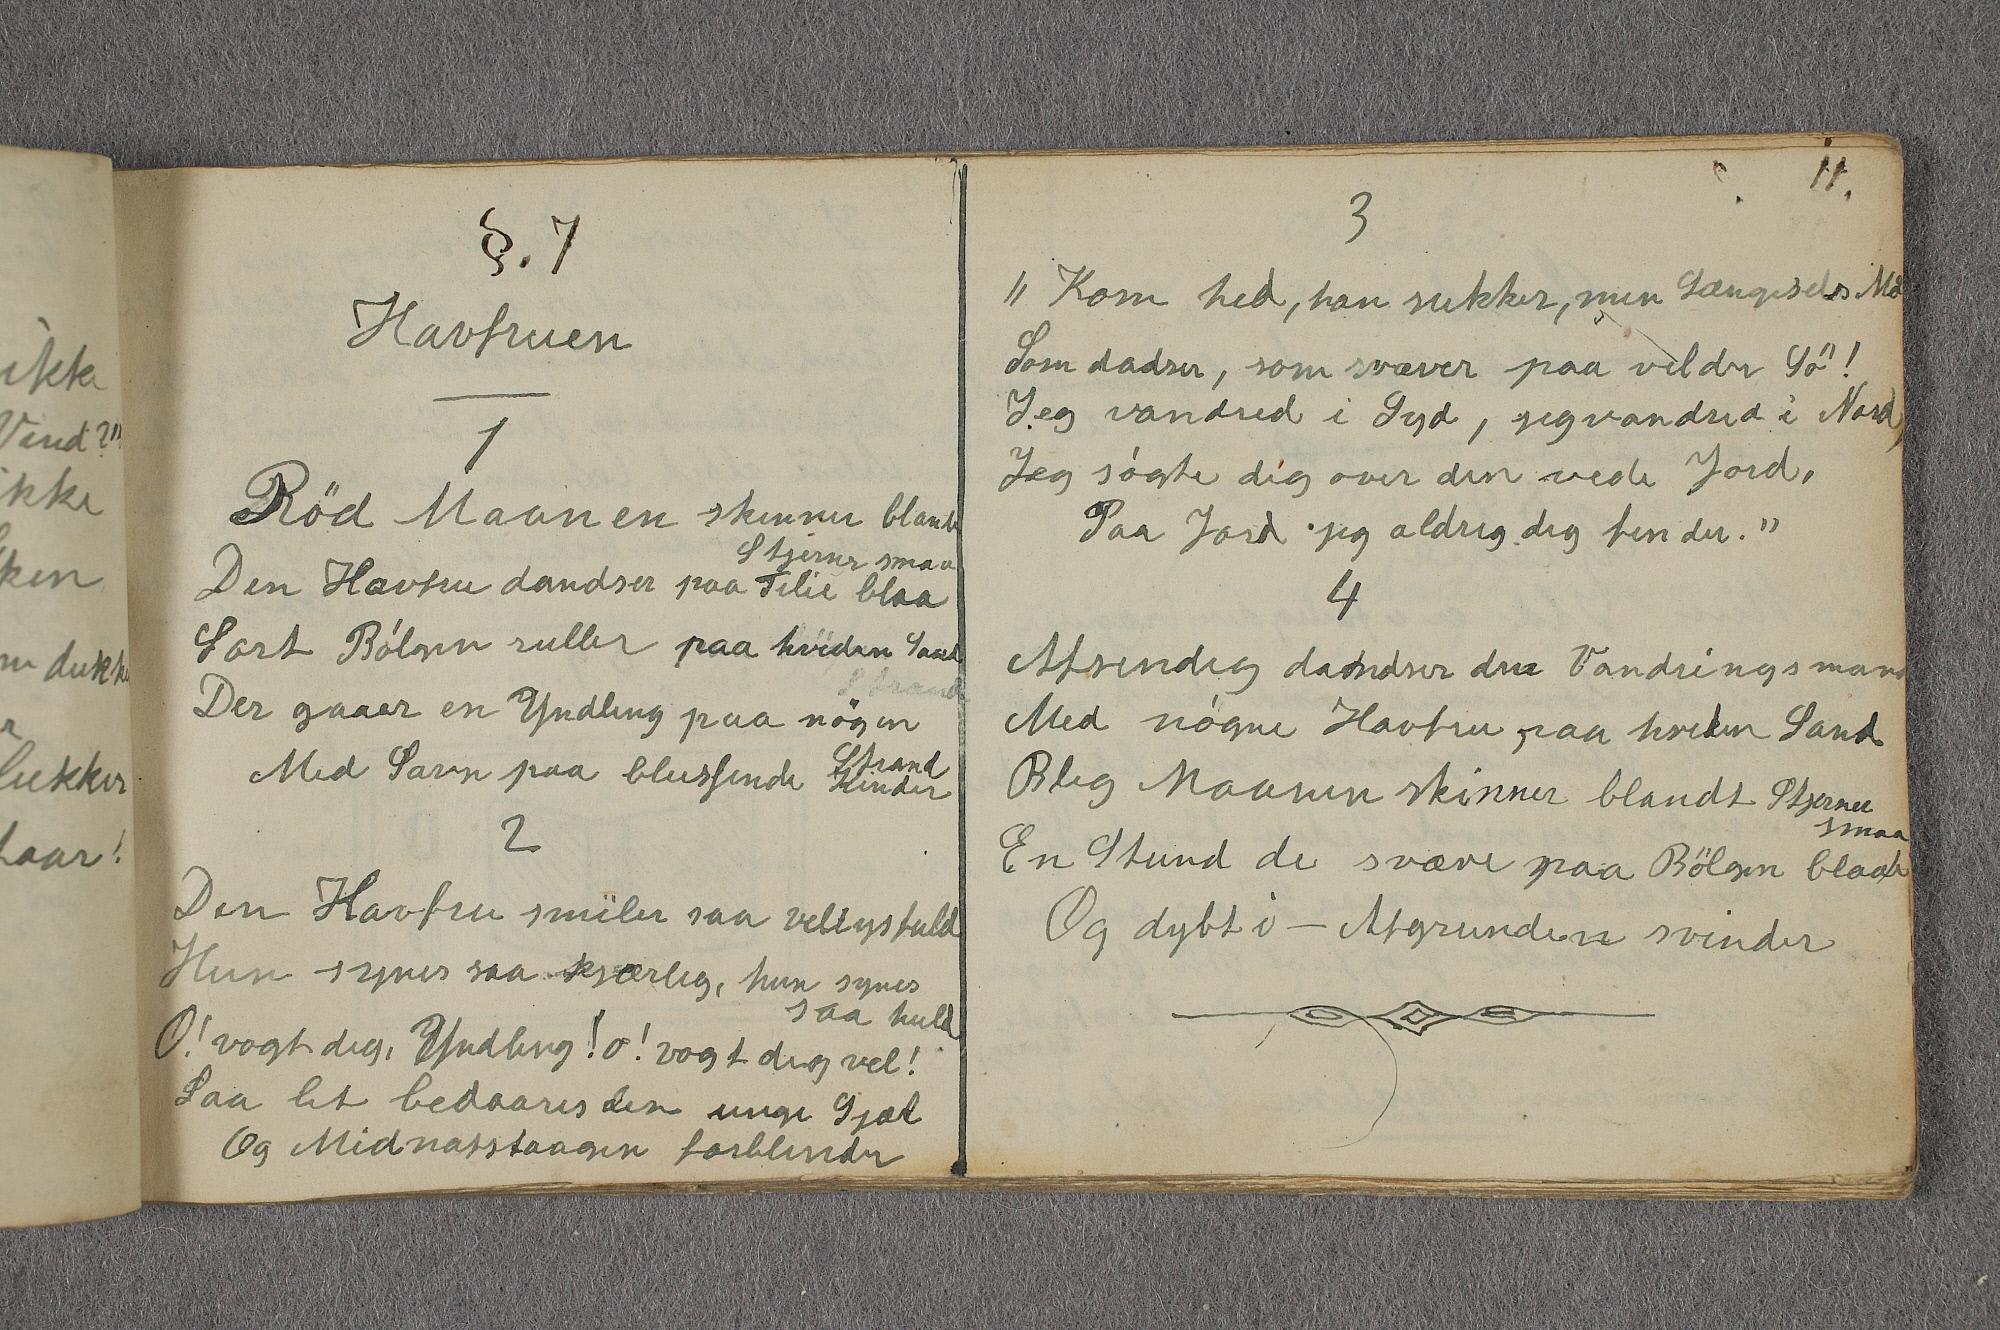 ikke
Vind?"
ikke
ken
dukke
lukker
taar!
§. 7
Havfruen
1
Röd Maanen skinner blandt
Stjerner smaa
Den Havfru dandser paa Tilie blaa
Sort Bölgen ruller paa hviden Sand
Strand
Der gaaer en Yndling paa nögen
Strand
Med Savn paa blussende Kinder
2
Den Havfru smiler saa vellystfuld
Hun synes saa kjærlig, hun synes
saa huld
O! vogt dig, Yndling! o! vogt dig vel!
Saa let bedaares den unge Sjæl
Og Midnatstaagen forblinder
11.
3
"Kom hid, han sukker, min Længsels Mö
Som dadser, som svæver paa vilder Sö"!
Jeg vandred i Syd, jeg vandred i Nord,
Jeg sögte dig over den vide Jord,
Paa Jord jeg aldrig dig finder."
4
Afsindig dandser den Vandringsmand
Med nögne Havfru paa hviden Sand
Bleg Maanen skinner blandt Stjerner
smaa
En Stund de svæve paa Bölgen blaa
Og dybt i - Afgrunden svinder